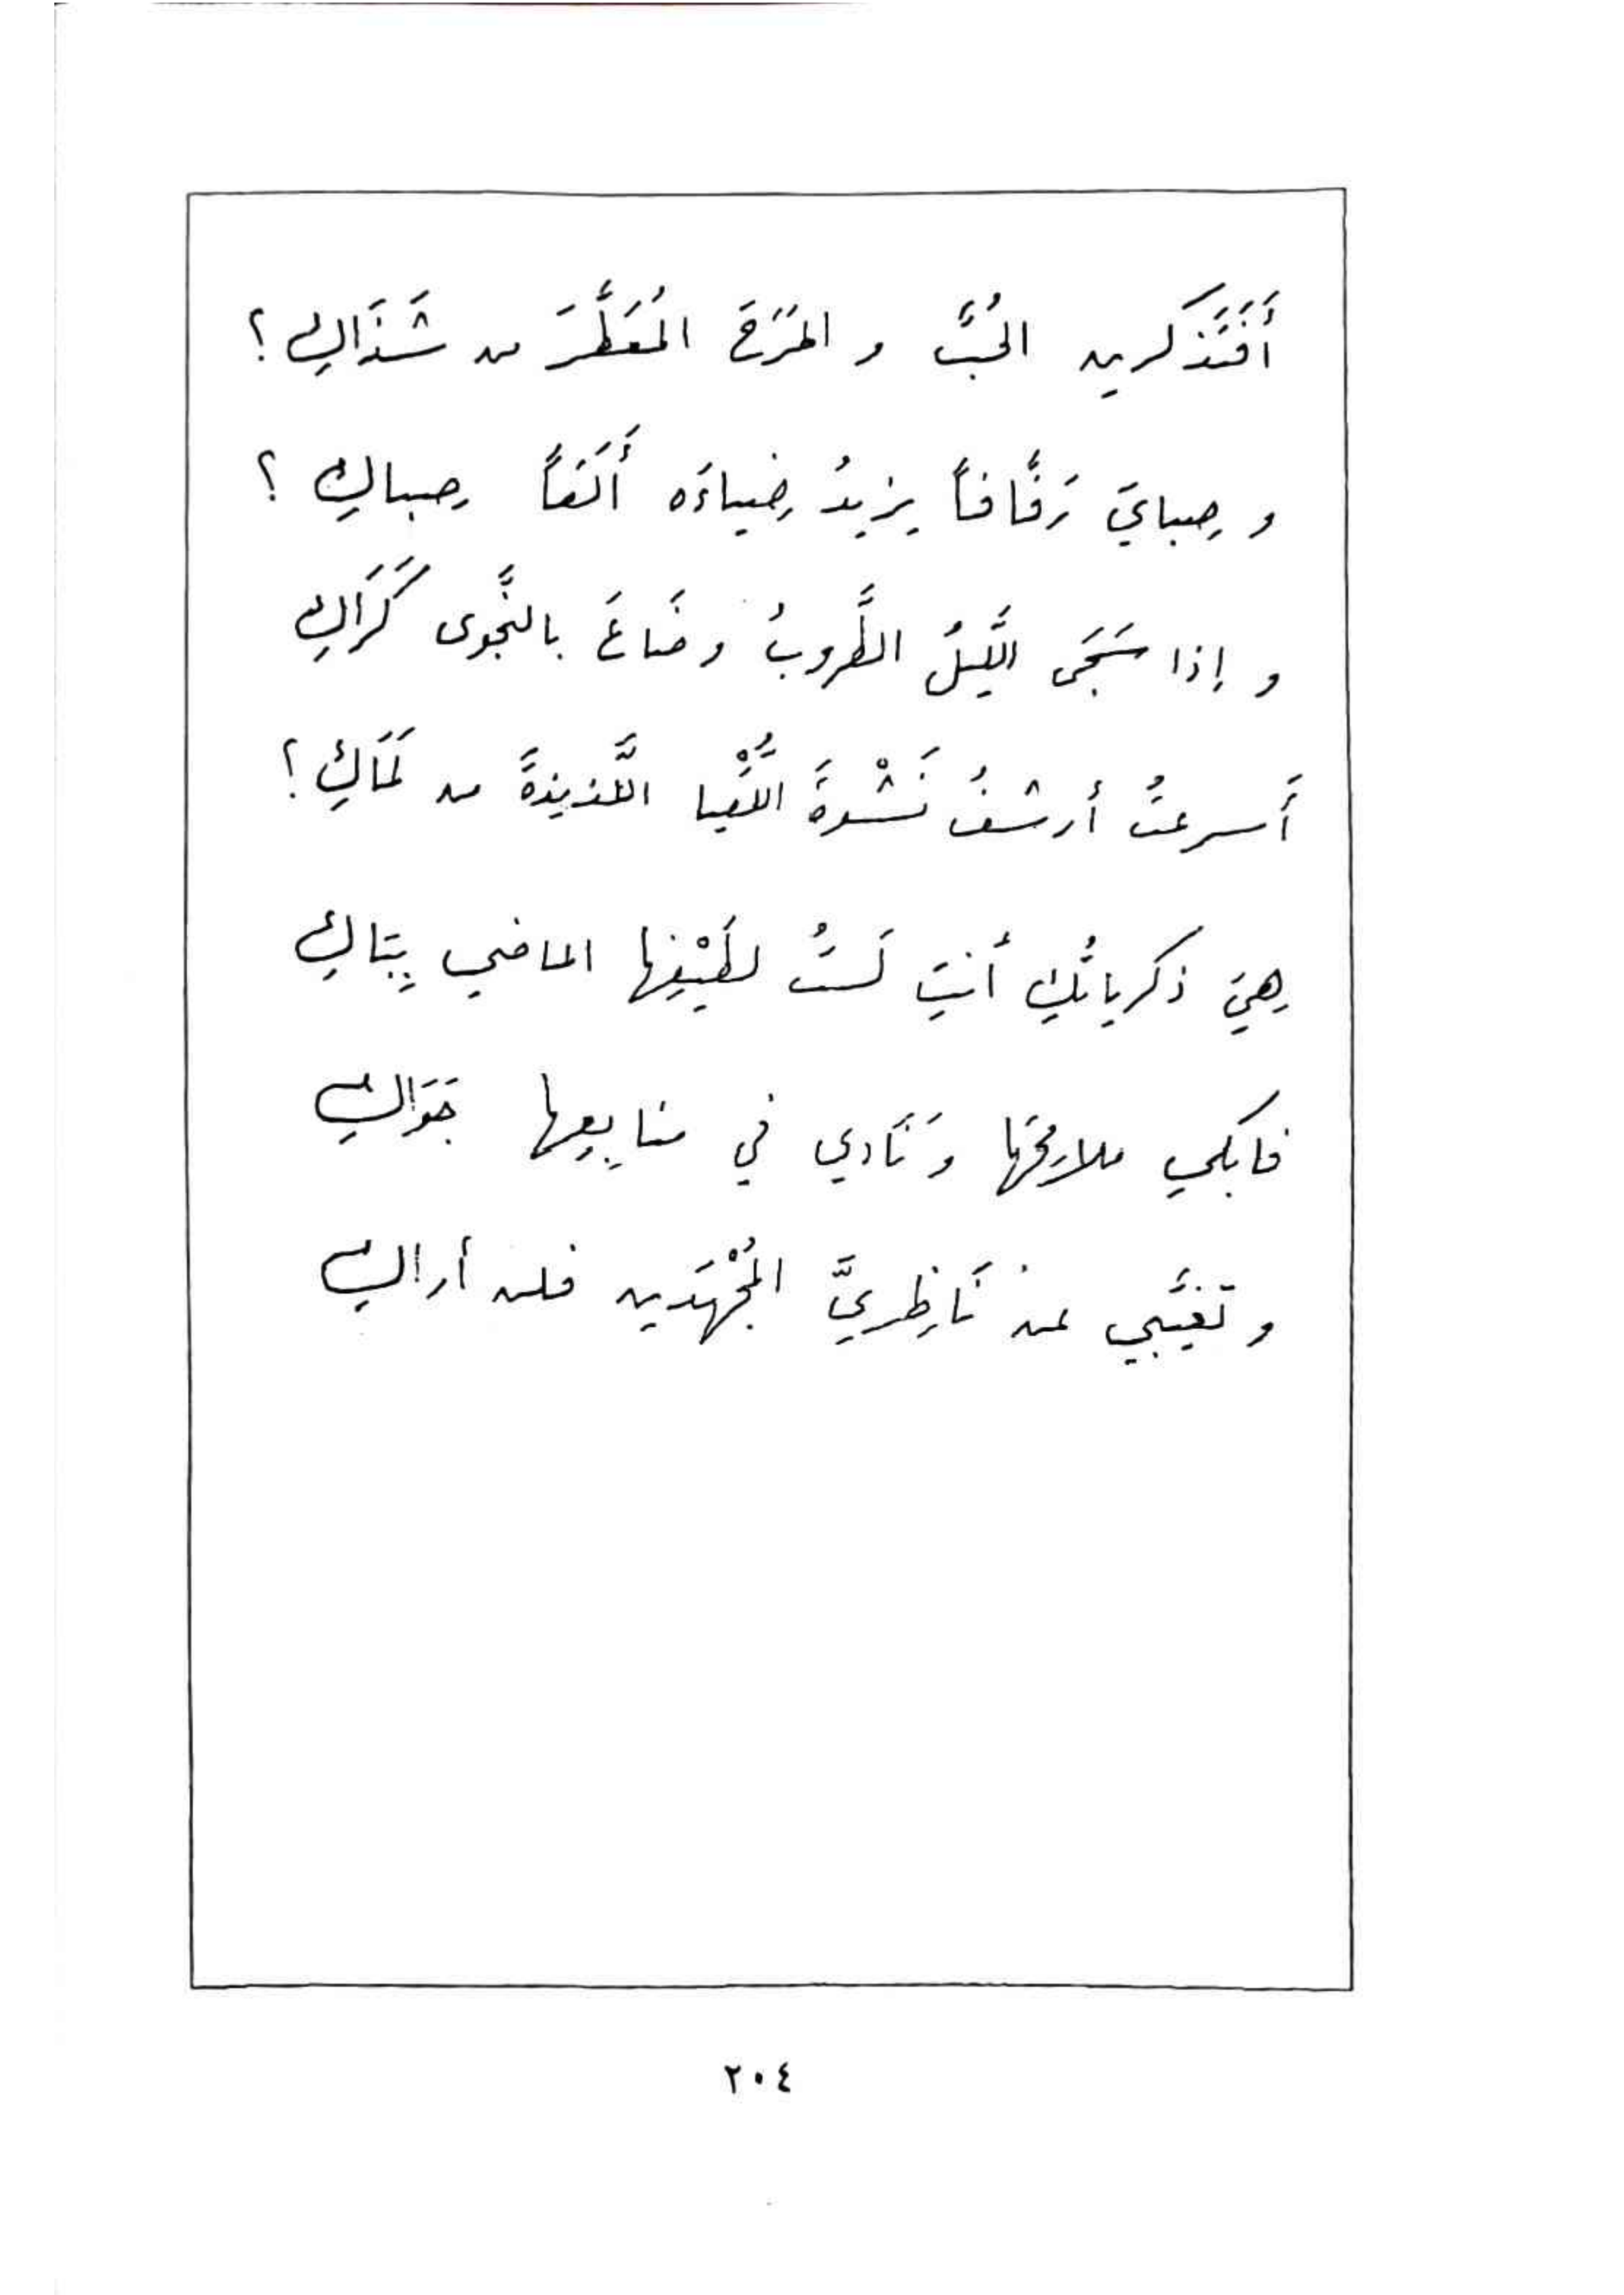 أَفَتَذكَرين الحُبَّ و المَرَحَ المُعَطَّرَ من شَذَاكِ ؟
و صِبايَ رَفَّافاً يزيدُ ضِياءَه أَلَقاً صِباكِ ؟
و إذا سَجَى اللَّيلُ الطَّروبُ وضَاعَ بالنَّجوى كَرَاكِ
أَسرعتُ أرشفُ نَشْوةَ اللُّقْيا اللَّذيذةَ من لَمَاكِ ؟
هِيَ ذكرياتُكِ أنتِ لَستُ لطَيْفِها الماضي بِبَاكِ
فابكي ملامِحَها وَنَادي في منابِعِها جَوَاكِ
و تغيَّبي عنْ نَاظِريَّ المُجْهَدَين فلن أراكِ
٢٠٤